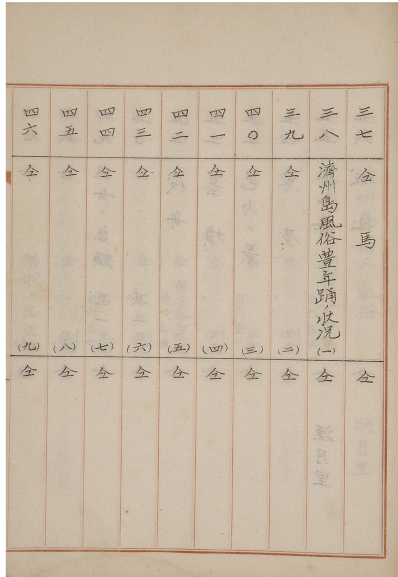 三七 仝 馬 仝
三八 濟州島風俗豊年踊ノ狀況(一) 仝
三九 仝 (二) 仝
四〇 仝 (三) 仝
四一 仝 (四) 仝
四二 仝 (五) 仝
四三 仝 (六) 仝
四四 仝 (七) 仝
四五 仝 (八) 仝
四六 仝 (九) 仝